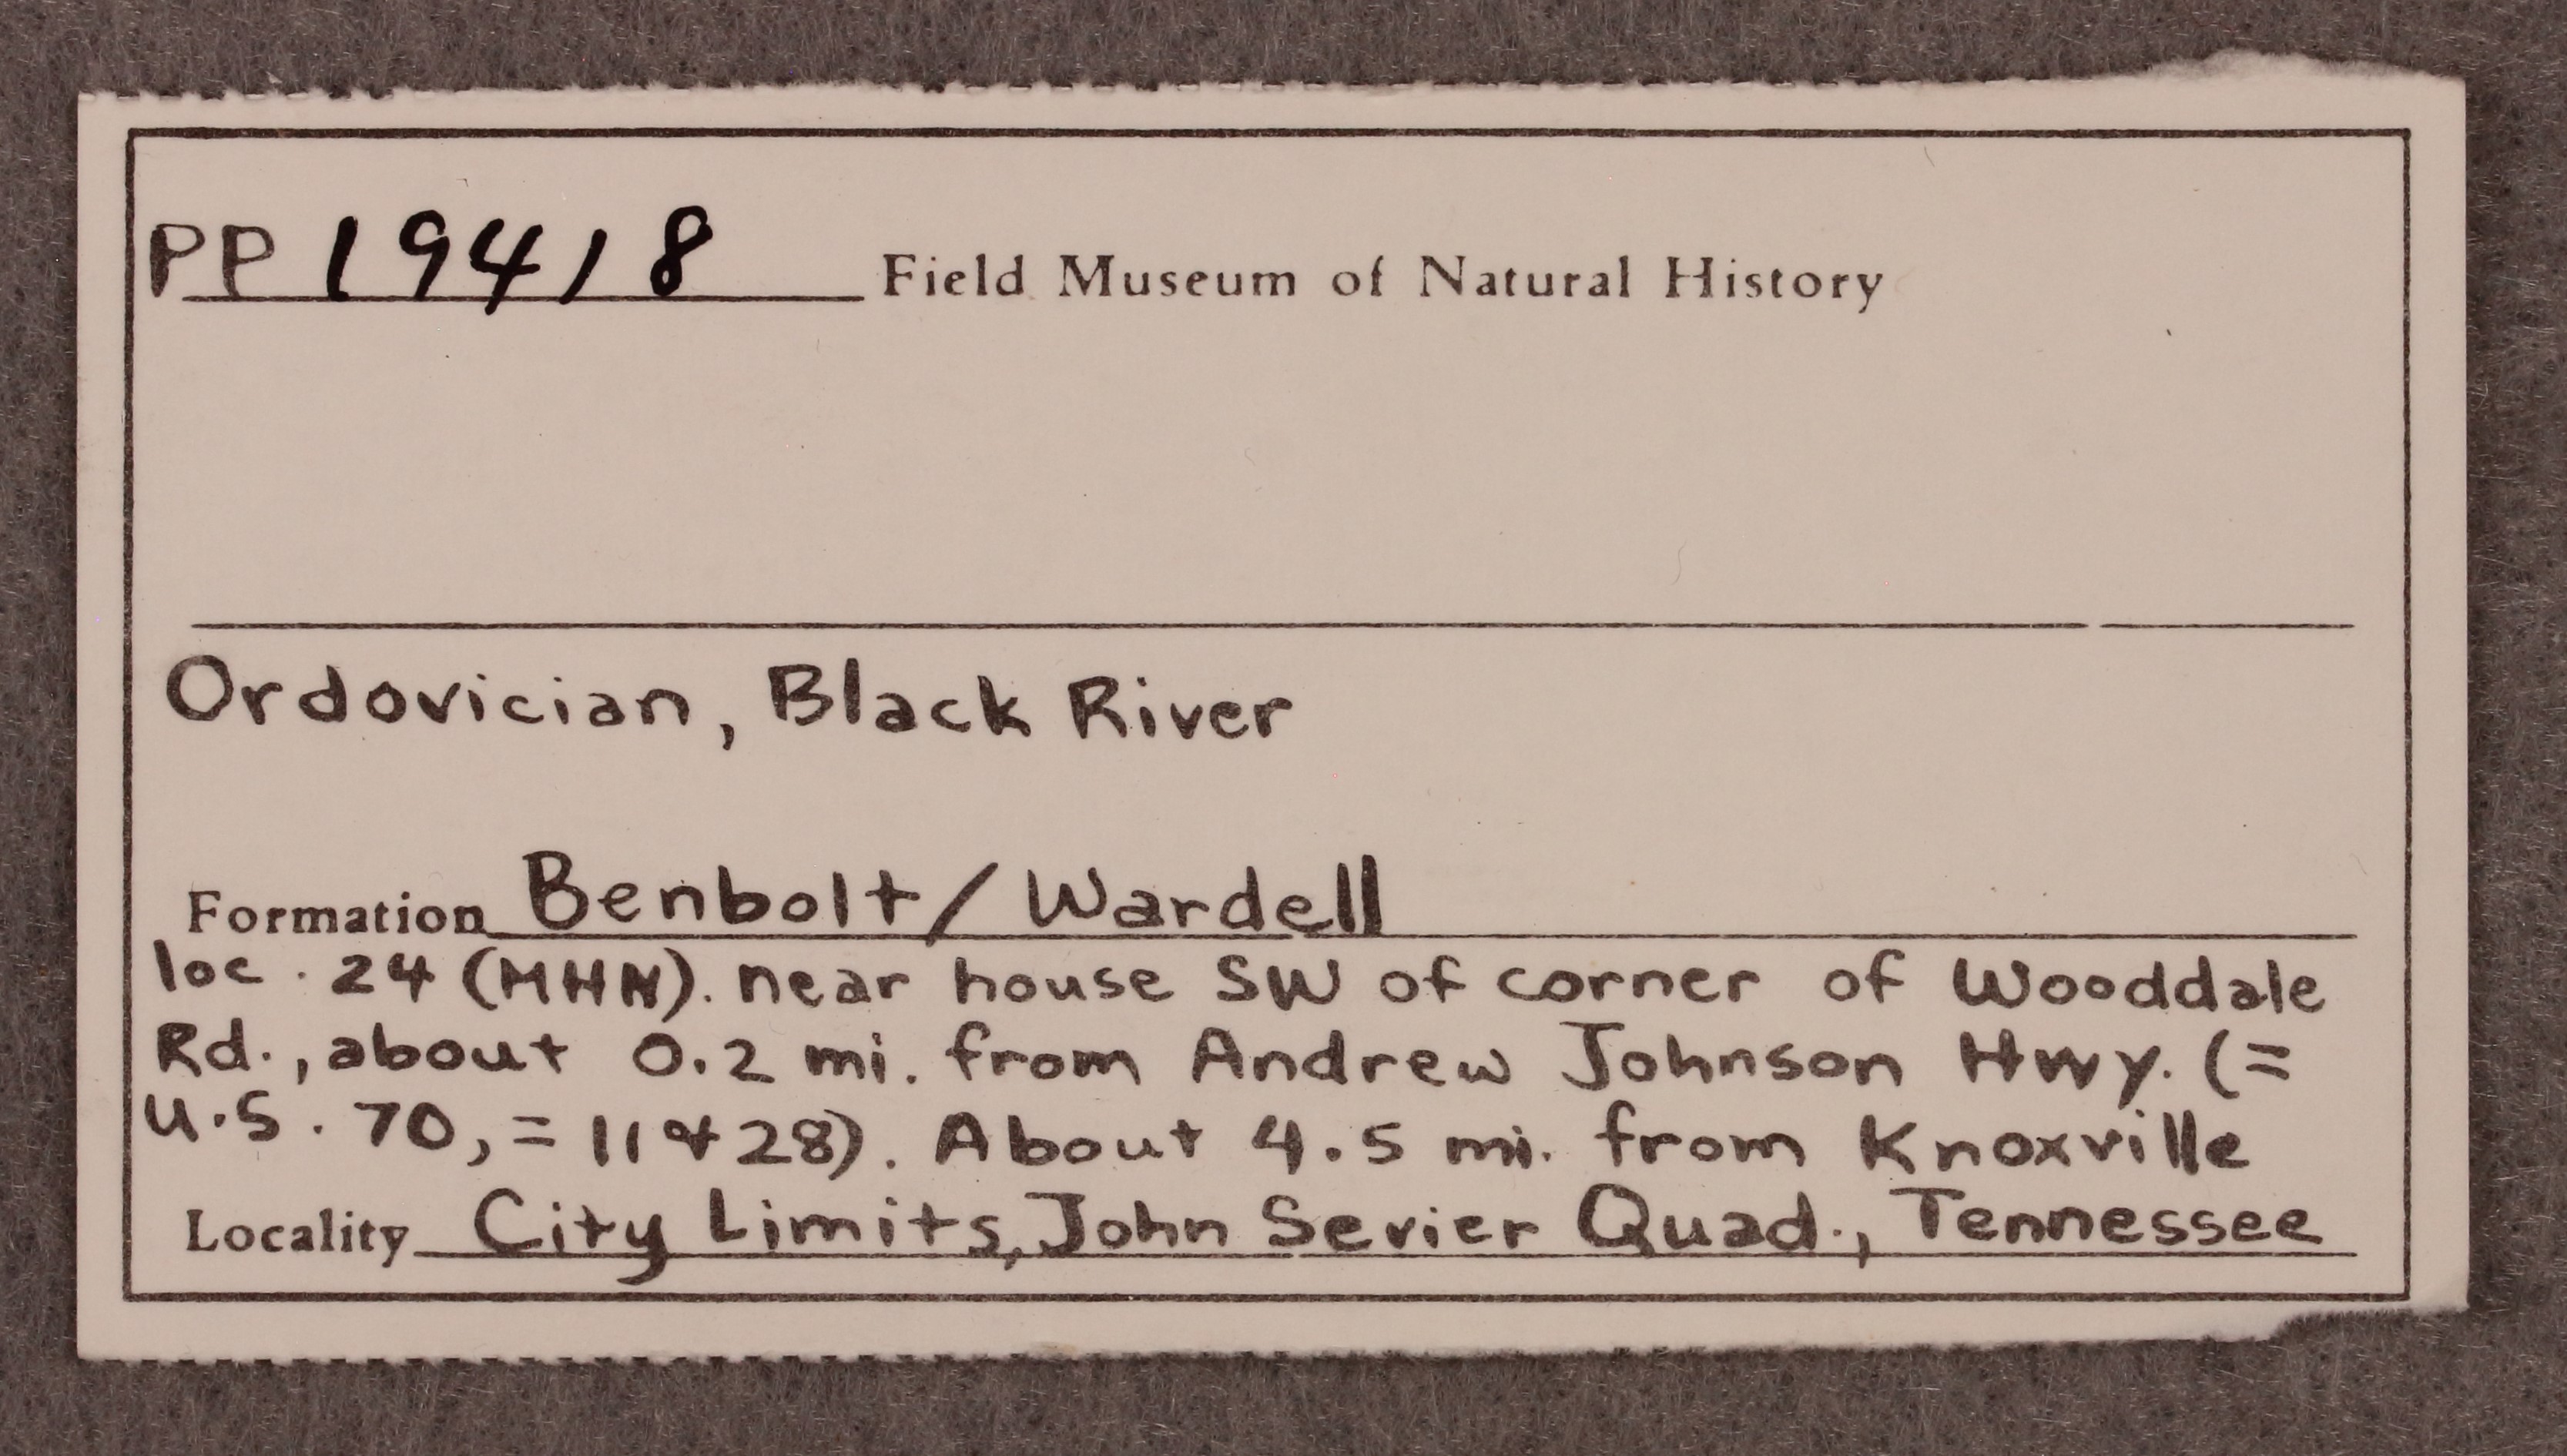 PP 19418 Field Museum of Natural History
Ordovician, Black River
Formation Benbolt/Wardell
loc. 24 (MHN). near house SW of corner of Wooddale
Rd., about 0.2 mi. from Andrew Johnson Hwy. (=
U.S. 70, = 11 & 28). About 4.5 mi. from Knoxville
Locality City Limits, John Sevier Quad., Tennessee